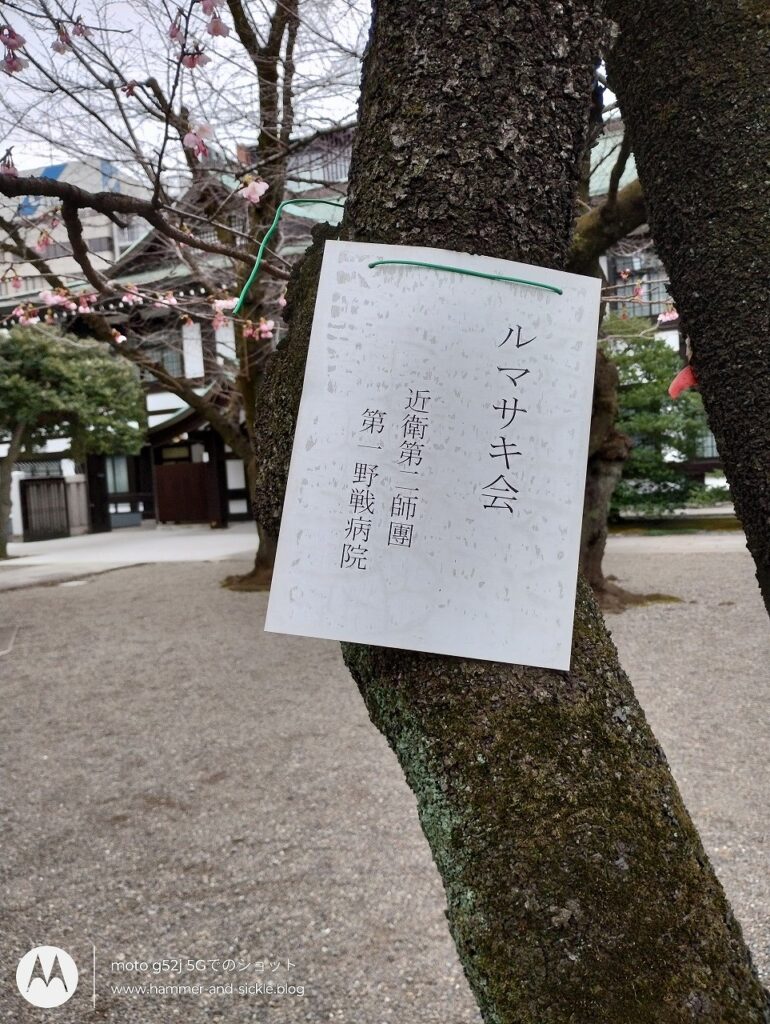 ルマサキ会
近衛第二師團
第一野戦病院
moto g52j 5Gでのショット
www.hammer-and-sickle.blog